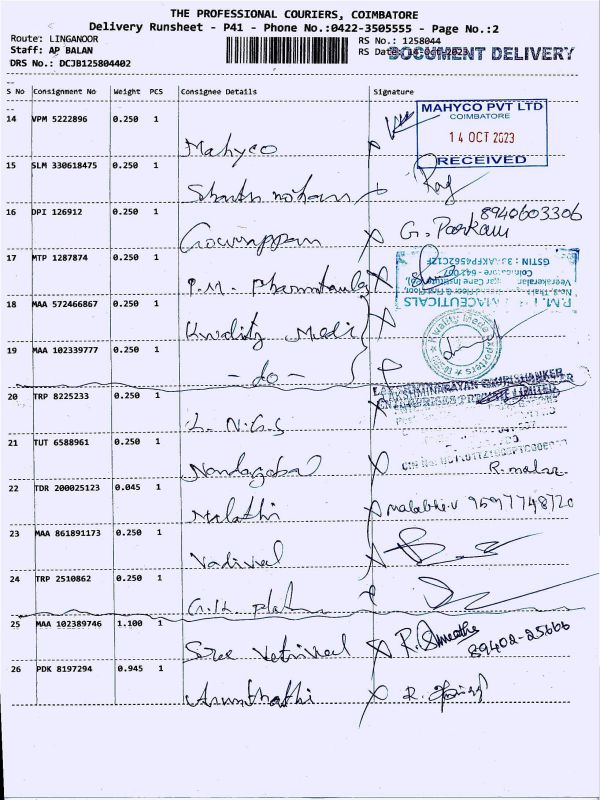 THE PROFESSIONAL COURIERS, COIMBATORE
Delivery Runsheet - P41 - Phone No.:0422-3505555 - Page No.:2
Route: LINGANOOR
RS No.: 1258044
Staff: AP BALAN
RS Date: 14-Oct-2023
DOCUMENT DELIVERY
DRS No.: DCJB125804402
S No Consignment No Weight PCS Consignee Details Signature
14 VPM 5222896 0.250 1
MAHYCO PVT LTD
COIMBATORE
14 OCT 2023
RECEIVED
Mahyco
15 SLM 330618475 0.250 1
Raj
16 DPI 126912 0.250 1
8940603306
G.
17 MTP 1287874 0.250 1
GSTIN : 33
Coimbatore - 641 007
P.M.
MACEUTICALS
18 MAA 572466867 0.250 1
Kwality Medi
Kwality Medi Exporters
19 MAA 102339777 0.250 1
- do -
20 TRP 8225233 0.250 1
LAKSHMINARAYAN GOURISHANKER
ENTERPRISES PRIVATE LIMITED
L. N. G. S
21 TUT 6588961 0.250 1
Nandagobal
22 TDR 200025123 0.045 1
Malathi
9597748720
23 MAA 861891173 0.250 1
Vadivel
24 TRP 2510862 0.250 1
25 MAA 102389746 1.100 1
Sree Vetrivel
89402-25666
26 PDK 8197294 0.945 1
Arunthathi